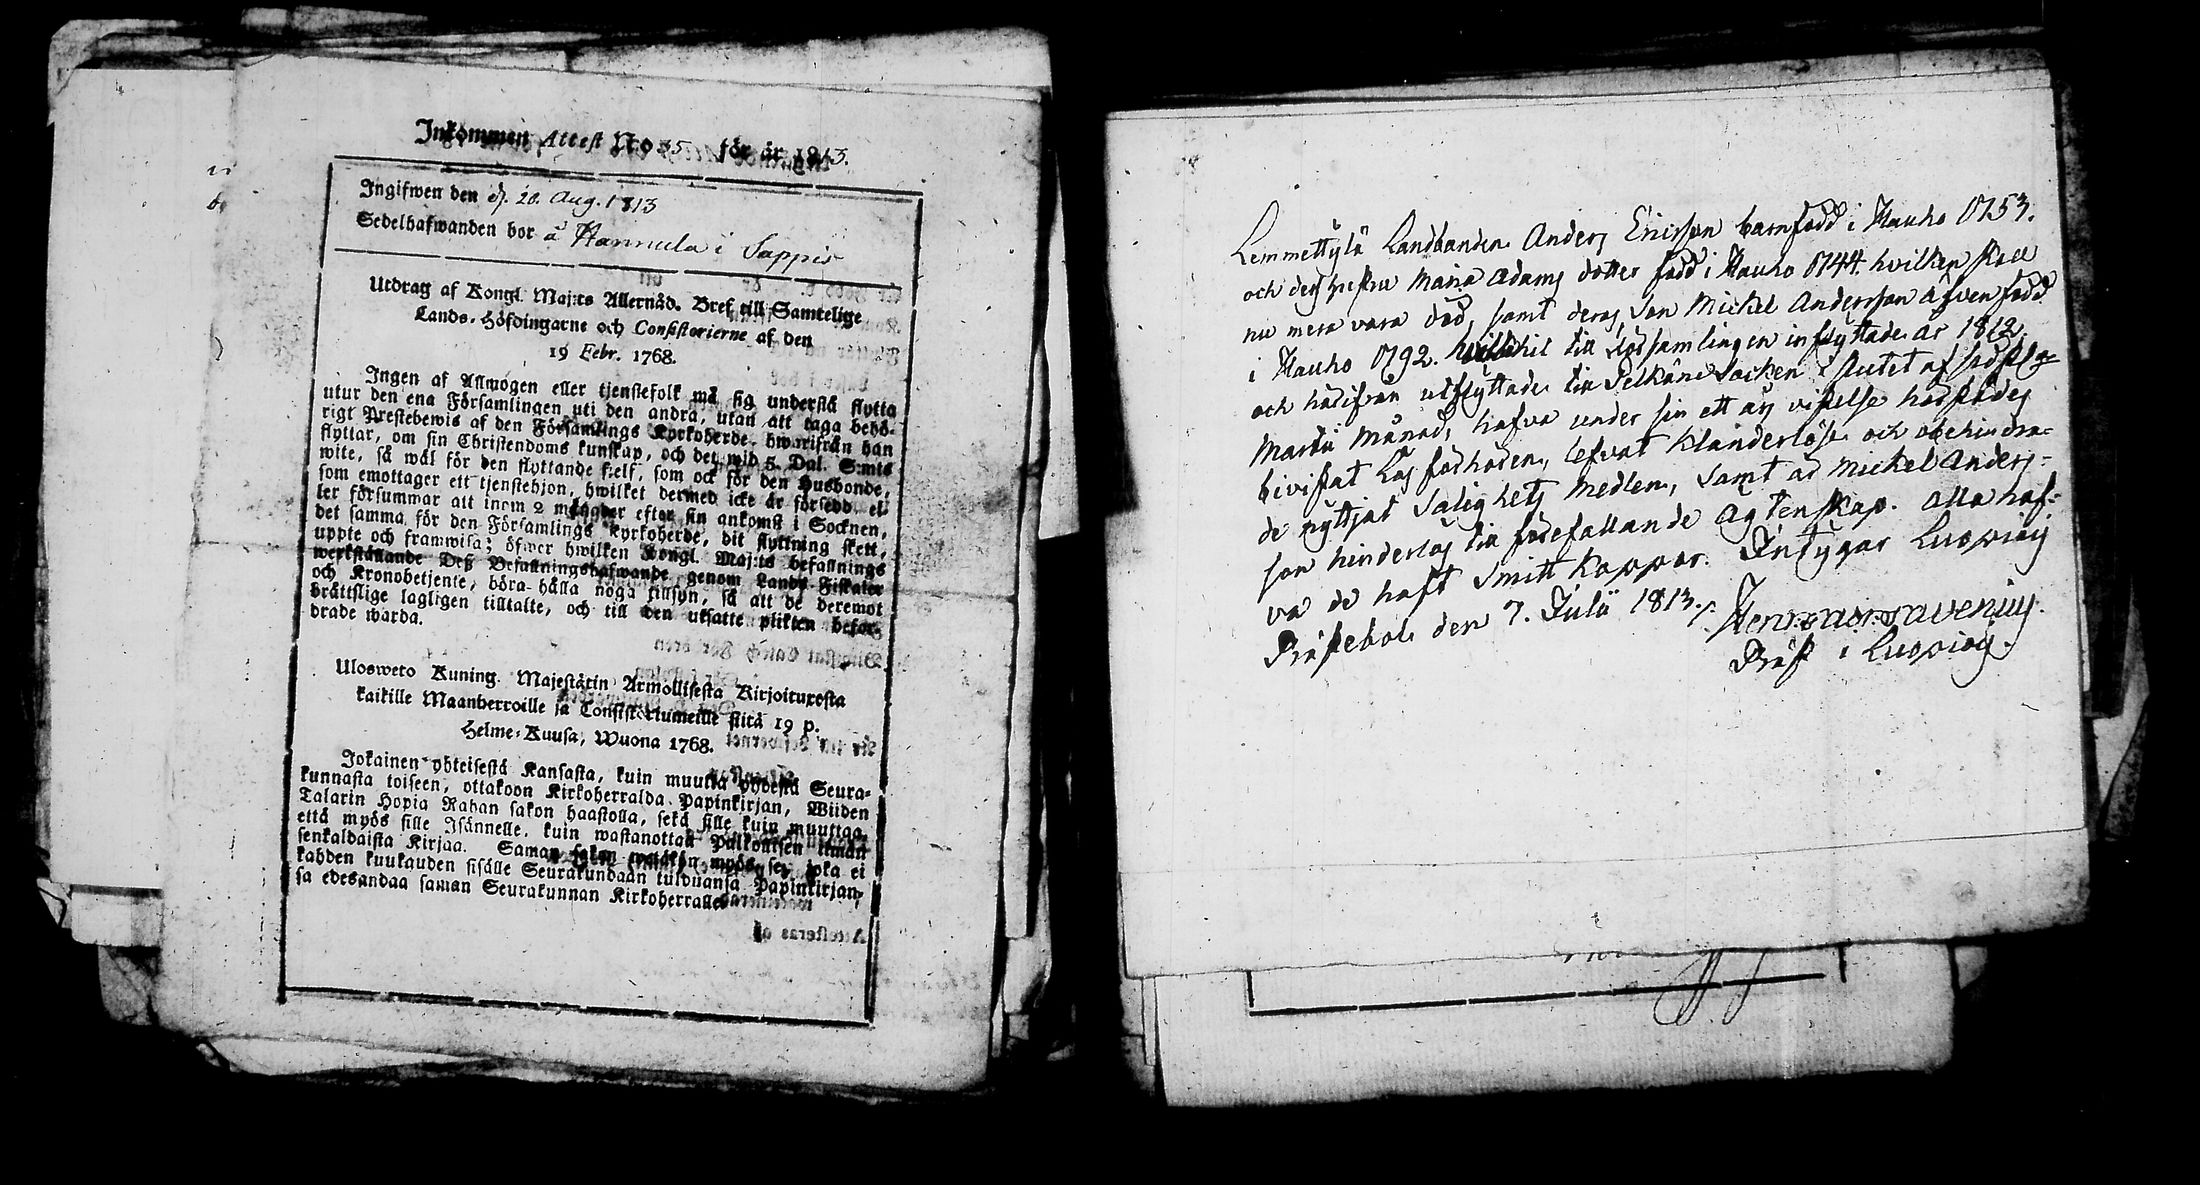 Inkommen Attest No 35 för år 1813.
Ingifwen den d. 20. Aug. 1813
Sedelhafwanden bor å Hannula i Sappis
Utdrag af Kongl. Maj:ts Allernåd. Bref till Samtelige
Lands-Höfdingarne och Consistorierne af den
19 Febr. 1768.
Ingen af Allmogen eller tjenstefolk må sig understå flytta
utur den ena Församlingen uti den andra, utan att taga behö-
rigt Prestebewis af den Församlings Kyrkoherde, hwarifrån han
flyttar, om sin Christendoms kunskap, och det wid 5. Dal. S:mts
wite, så wäl för den flyttande sjelf, som ock för den Husbonde,
som emottager ett tjenstehjon, hwilket dermed icke är försedd, el-
ler försummar att inom 2 månader efter sin ankomst i Socknen,
det samma för den Församlings Kyrkoherde, dit flyttning skett,
uppte och framwisa; öfwer hwilken Kongl. Maj:ts befallnings
werkställande Deß Befallningshafwande genom Lands-Fiskaler
och Kronobetjente, böra hålla noga tillsyn, så att de deremot
bråttslige lagligen tilltalte, och till den utsatte plikten befor-
drade warda.
Ulosweto Kuning. Majestätin Armollisesta Kirjoituxesta
kaikille Maanherroille ja Consistoriumeille siitä 19 p.
Helme-Kuusa, Wuona 1768.
Jokainen yhteisestä Kansasta, kuin muutta yhdestä Seura-
kunnasta toiseen, ottakoon Kirkoherralda Papinkirjan, Wiiden
Talarin Hopia Rahan sakon haastolla, sekä sille kuin muuttaa,
että myös sille Isännelle, kuin wastanottaa Palkollisen ilman
senkaldaista Kirjaa. Saman sakon wetäkön myös se, joka ei
kahden kuukauden sisälle Seurakundaan tulduansa Papinkirjan-
sa edesandaa saman Seurakunnan Kirkoherralle.
Lemmettylä Landbonden Anders Ericsson barnfödd i Hauho 1753.
och dess hustru Maria Adams dotter född i Hauho 1744. hvilken skall
nu mera vara död, samt deras Son Michel Andersson äfven född
i Hauho 1792. hit till församlingen inflyttade år 1812,
och härifrån utflyttade till Pelkäne Socken i slutet af sidstl.
Martii Månad, hafva under sin ett års vistelse härstädes
bivistat Läsförhören, lefvat klanderlöst och obehindra-
de nyttjat Salighets Medlen, samt är Michel Anders-
son hinderlös till förefallande Ägtenskap. Alla haf-
va de haft Smittkoppor. Intygar Luopiois
Prästebol den 7. Julii 1813.
Präst i Luopiois.